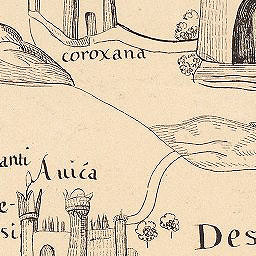 coroxana
anti Auića
e-
si
Des